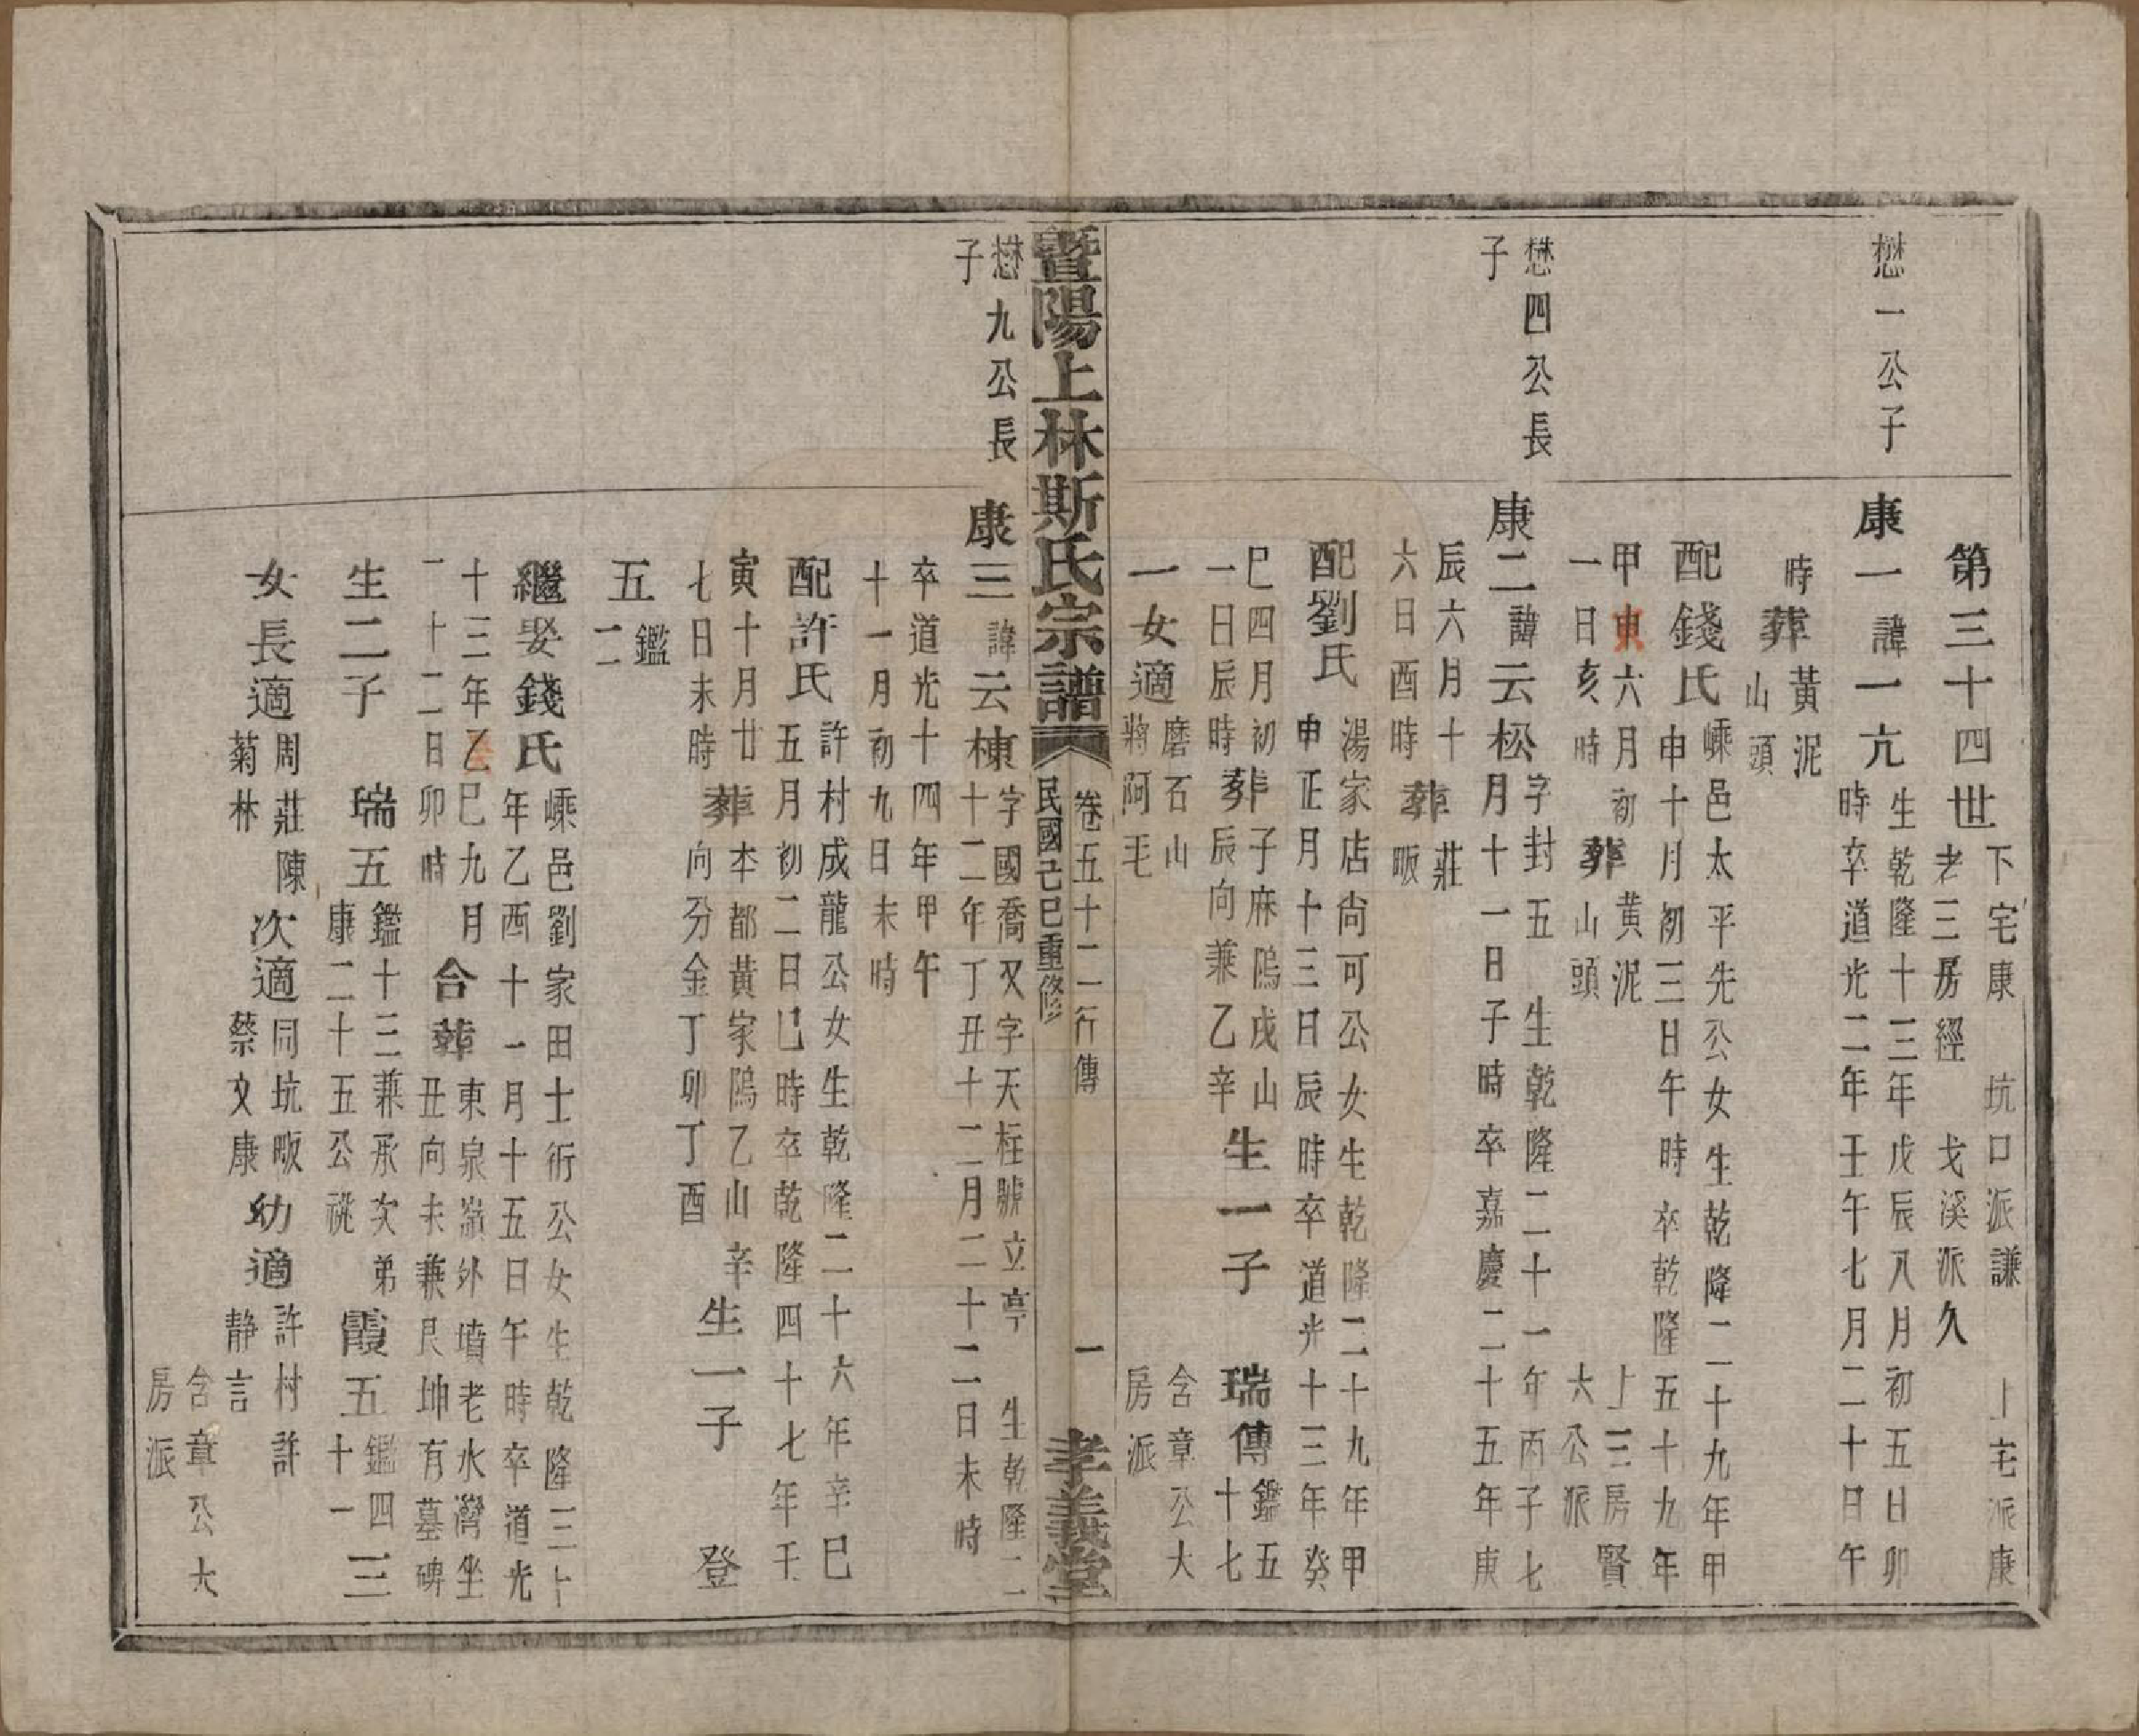 第三十四世
下宅康 坑口派謙 上宅派康
老三房經 戈溪派久
懋一公子
康一諱一亢
生乾隆十三年戊辰八月初五日卯
時卒道光二年壬午七月二十日午
時葬黃泥
山頭
配錢氏
嵊邑太平先公女生乾隆二十九年甲
申十月初三日午時卒乾隆五十九年
甲寅六月初
一日亥時
葬黃泥
山頭
上三房賢
大公派
懋四公長
子
康二諱云松
字封五 生乾隆二十一年丙子七
月十一日子時卒嘉慶二十五年庚
辰六月十
六日酉時
葬莊
畈
配劉氏
湯家店尙可公女生乾隆二十九年甲
申正月十三日辰時卒道光十三年癸
巳四月初
一日辰時
葬子麻鳴戌山
辰向兼乙辛
生一子
瑞傳鑑五
十七
一女適磨石山
蔣阿毛
含章公大
房派
暨陽上林斯氏宗譜
卷五十二行傳
民國己巳重修
一
孝義堂
懋九公長
子
康三諱云棟
字國喬又字天柱號立亭 生乾隆二
十二年丁丑十二月二十二日未時
卒道光十四年甲午
十一月初九日未時
配許氏
許村成龍公女生乾隆二十六年辛巳
五月初二日巳時卒乾隆四十七年壬
寅十月廿
七日未時
葬本都黃家塢乙山辛
向分金丁卯丁酉
生一子 登
五鑑
二
繼娶錢氏
嵊邑劉家田士衍公女生乾隆三十
年乙酉十一月十五日午時卒道光
十三年癸巳九月
一十二日卯時
合葬東泉嶺外墳老水灣坐
丑向未兼艮坤有墓碑
生二子 瑞五鑑十三兼承次弟
康二十五公祧
霞五鑑四
十一
三
女長適周莊陳
菊林
次適同坑畈
蔡文康
幼適許村許
静言
含章公大
房派